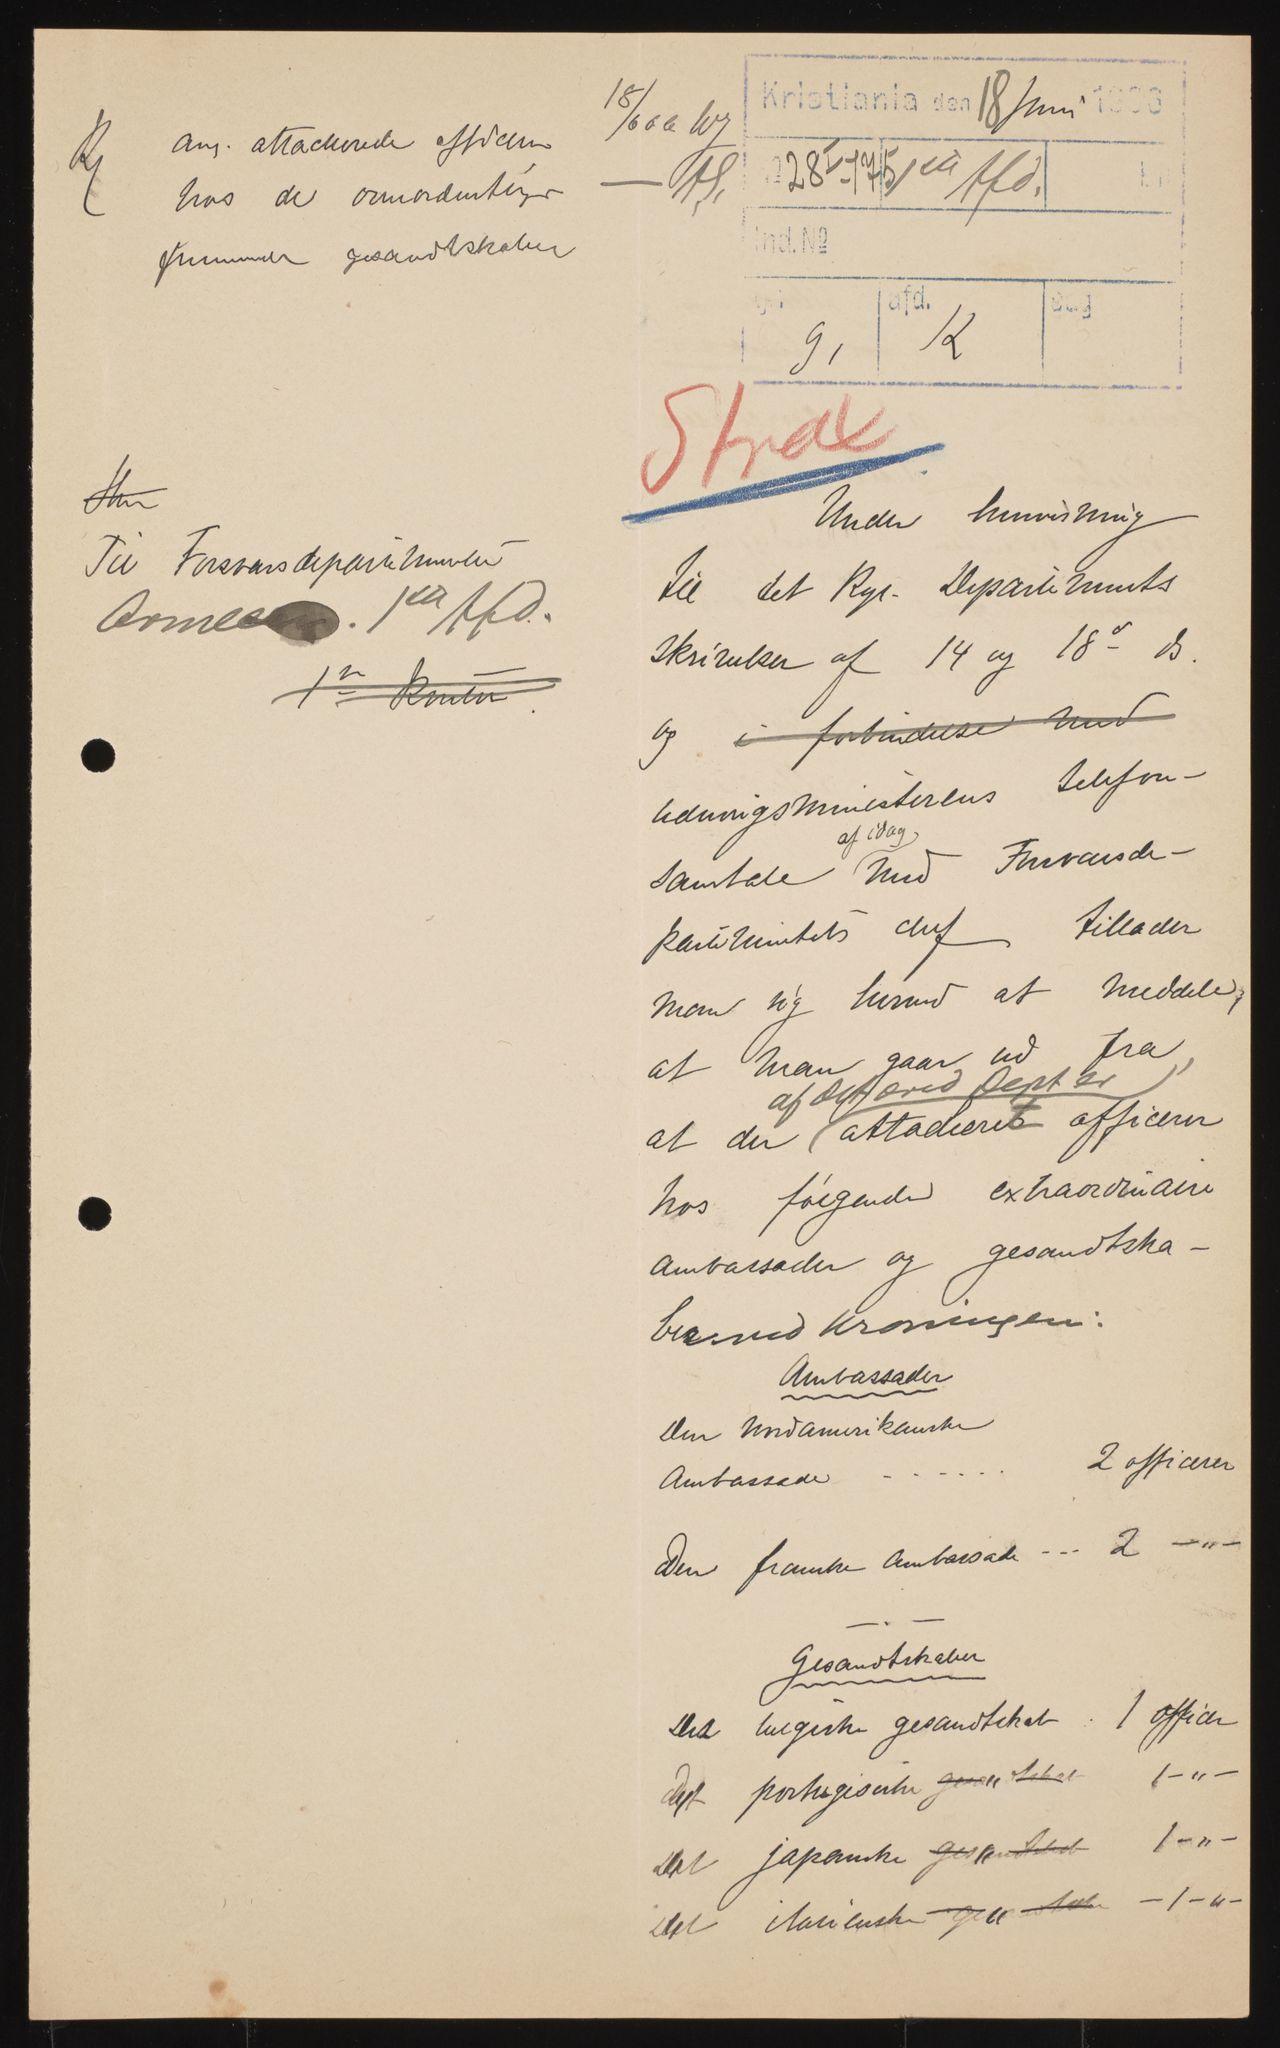 ang. attacherede officerer
hos de overordentlige
fremmede gesandtskaber
18/6 06
Kristiania den 18 Juni 1906
1ste Afd.
Ind. №
afd.
9, K
Strax
Til Forsvarsdepartementet
1ste Afd.
1ste Kontor
Under henvisning
til det Kgl. Departements
skrivelser af 14 og 18 ds.
og i forbindelse med
udenrigsministerens telefon-
af idag
samtale med Forsvarsde-
partementets chef tillader
man sig herved at meddele,
at man gaar ud fra,
af det ærede Dept er
at der attacheret officerer
hos følgende extraordinære
ambassader og gesandtska-
ber ved kroningen:
Ambassader
Den nordamerikanske
Ambassade . . . . . . 2 officerer
Den franske ambassade --- 2 —„—
Gesandtskaber
Det belgiske gesandtskab . 1 officer
Det portugisiske gesandtskab 1 -„-
Det japanske gesandtskab 1 -„-
Det italienske gesandtskab - 1 -„-